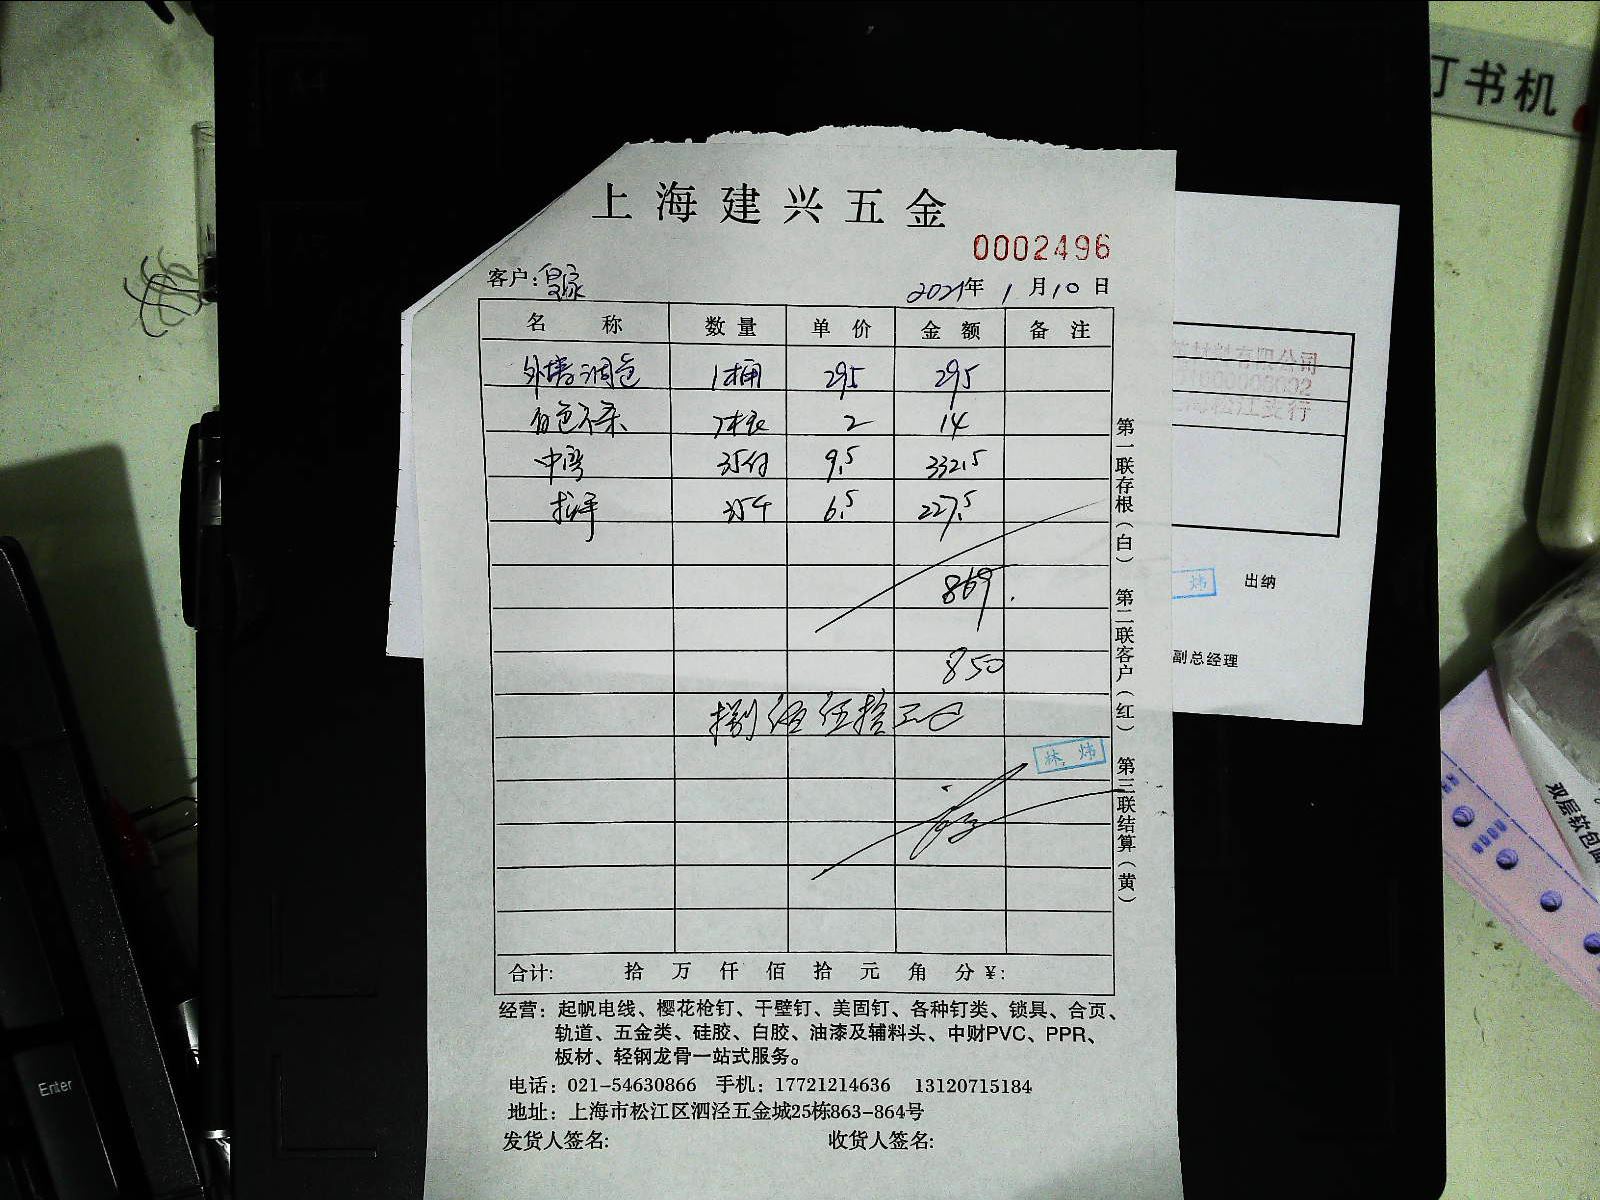 订书机
上海建兴五金
0002496
客户: 皇家 2021年 1月10日
名 称 数量 单价 金额 备注
外墙调色 1桶 295 295
白色 7 2 14
中弯 35付 9.5 332.5
拉手 35个 6.5 227.5
869.
850
捌佰伍拾元
林炜
第一联存根(白) 第二联客户(红) 第三联结算(黄)
合计: 拾 万 仟 佰 拾 元 角 分 ¥:
经营: 起帆电线、樱花枪钉、干壁钉、美固钉、各种钉类、锁具、合页、
轨道、五金类、硅胶、白胶、油漆及辅料头、中财PVC、PPR、
板材、轻钢龙骨一站式服务。
电话: 021-54630866 手机: 17721214636 13120715184
地址: 上海市松江区泗泾五金城25栋863-864号
发货人签名: 收货人签名:
材料有限公司
松江支行
炜 出纳
副总经理
双层软包
Enter
A4